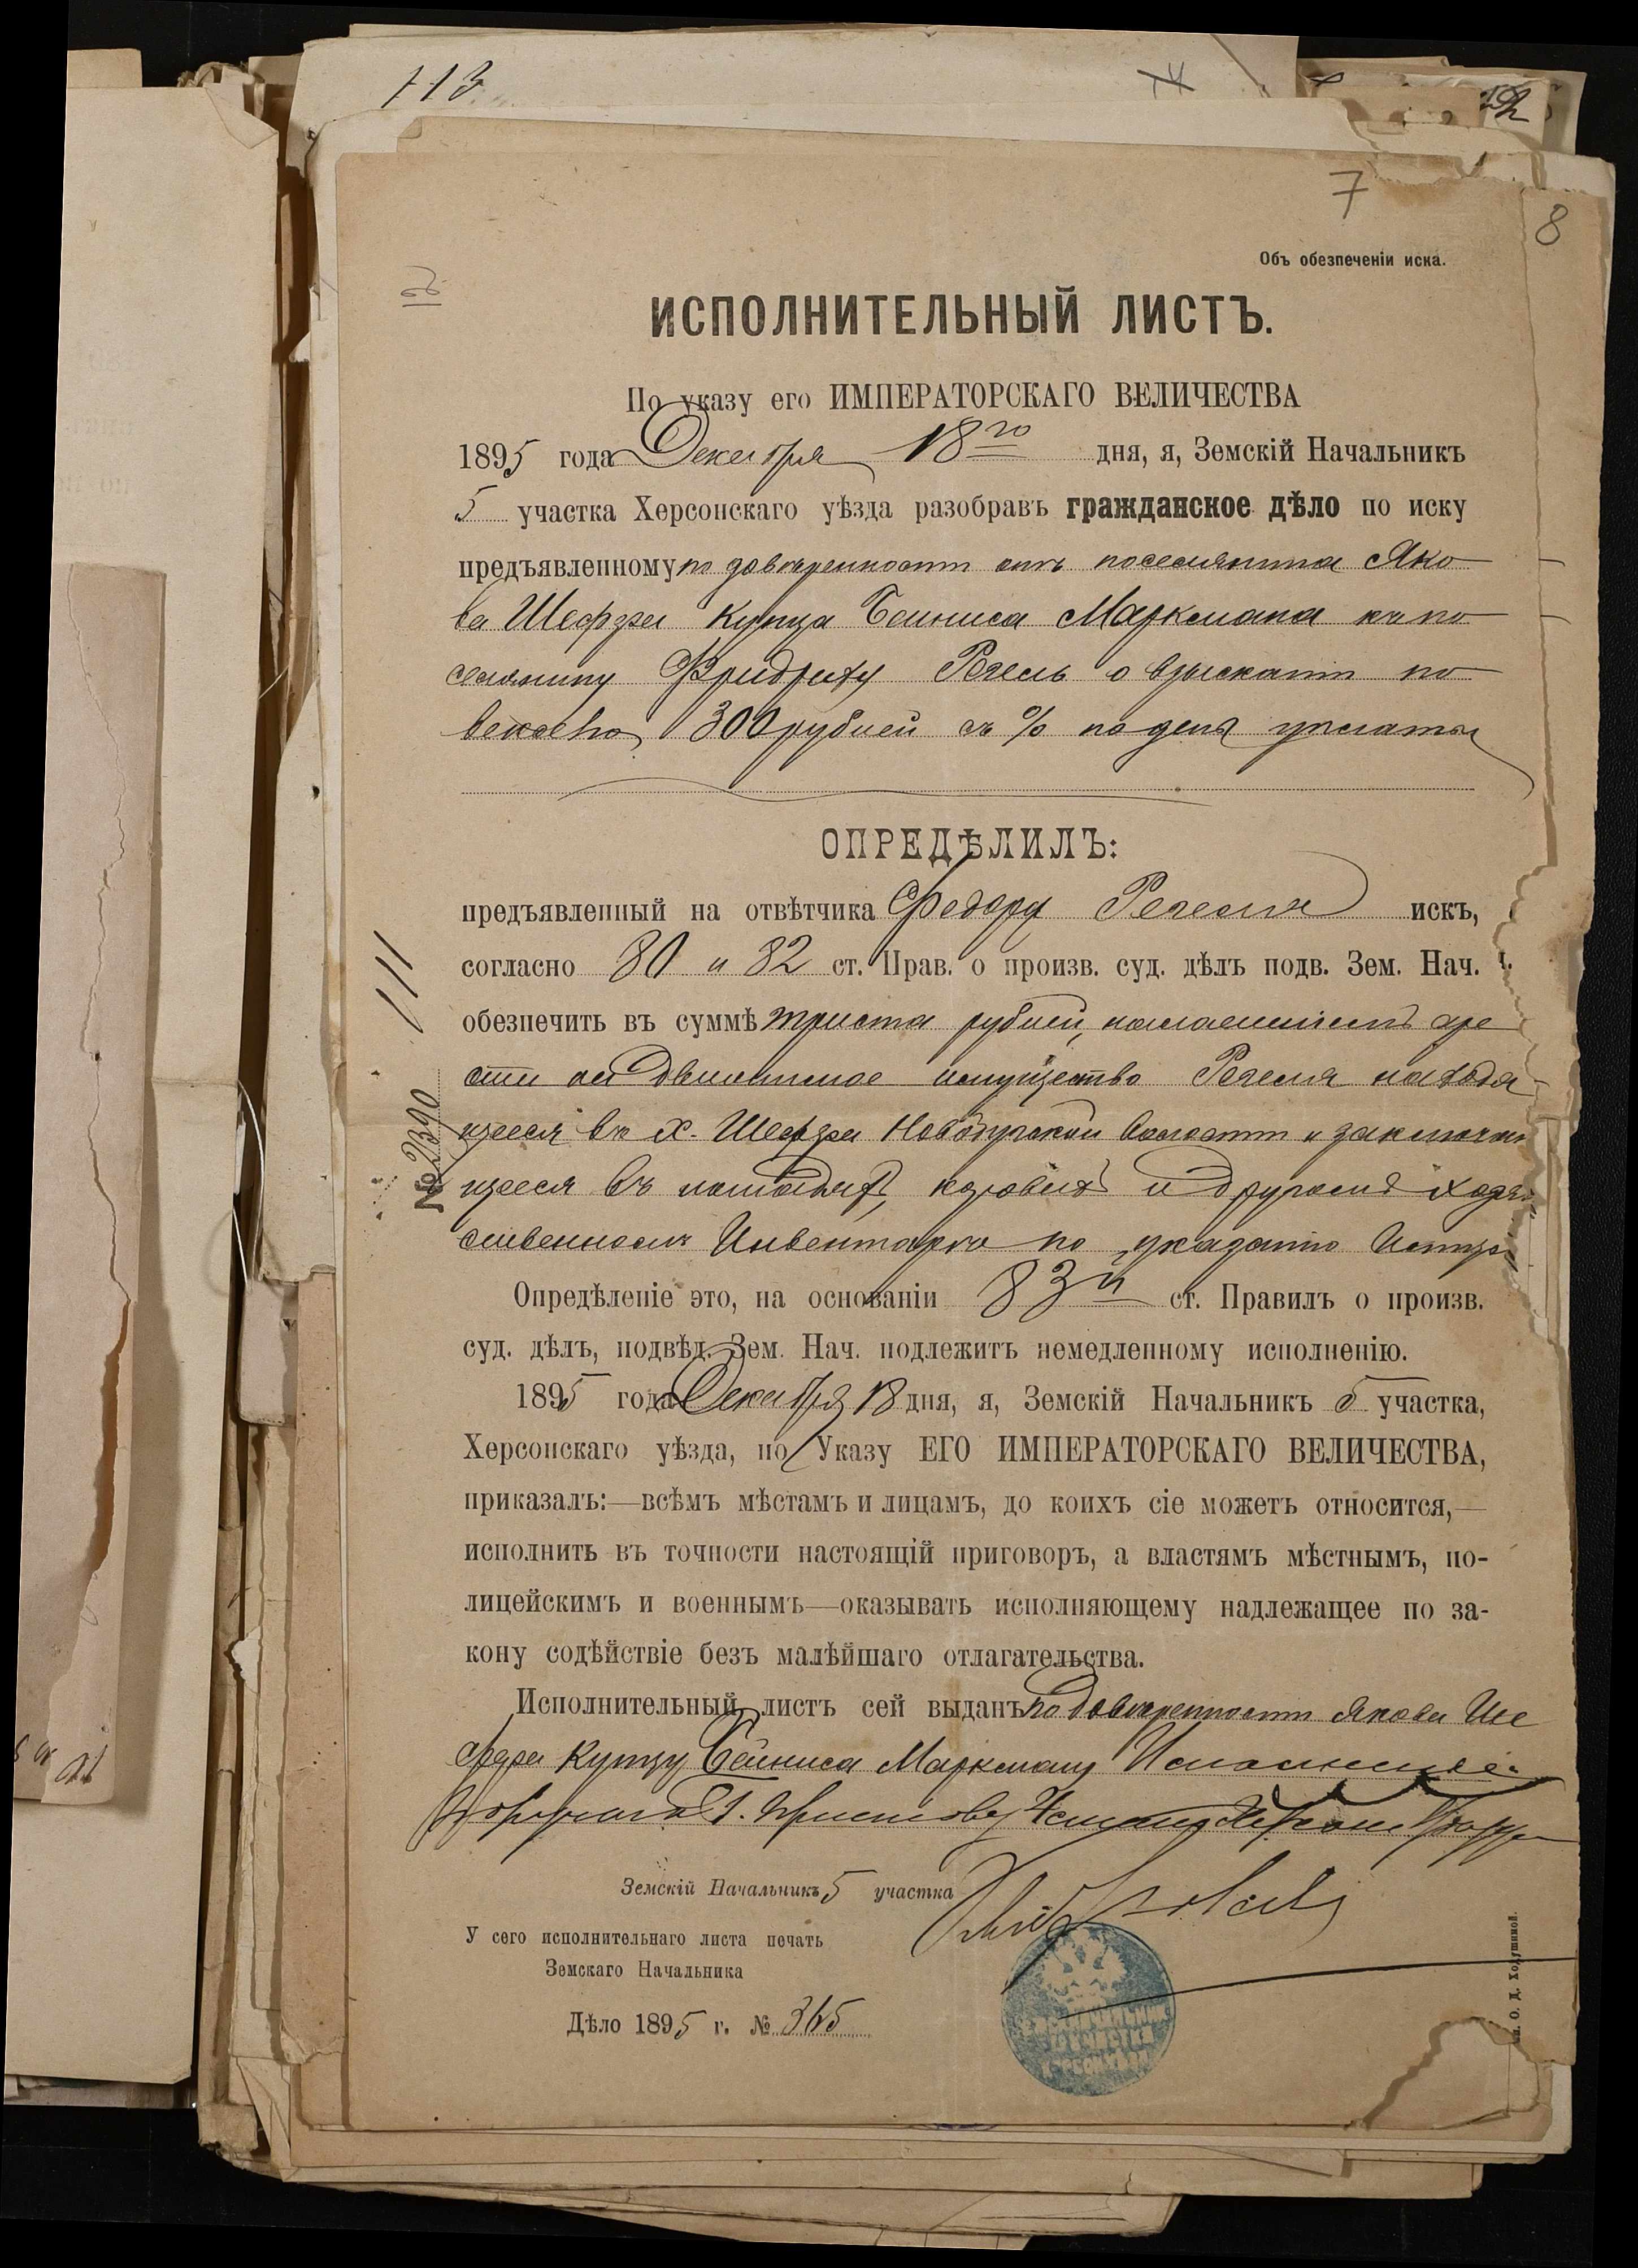 113
7
8
Объ обезпеченіи иска.
ИСПОЛНИТЕЛЬНЫЙ ЛИСТЪ.
По указу его ИМПЕРАТОРСКАГО ВЕЛИЧЕСТВА
1895 года Декабря 18го дня, я, Земскій Начальникъ
5 участка Херсонскаго уѣзда разобравъ гражданское дѣло по иску
предъявленному по довѣренности отъ поселянина Яко
ва Шефера Купца Бейниса Маркмана къ по
селянину Фридриху Регель о взысканіи по
векселю 300 рублей съ % по день уплаты
ОПРЕДѢЛИЛЪ:
предъявленный на отвѣтчика Федора Регеля искъ,
согласно 80 и 82 ст. Прав. о произв. суд. дѣлъ подв. Зем. Нач.
обезпечить въ суммѣ триста рублей, наложеніемъ аре
ста на движимое имущество Регеля находя
щееся въ х. Шефера Новобугской волости и заключаю
щееся въ лошадяхъ, коровахъ и другомъ хозяй
ственномъ Инвентарѣ по указанію Истца
Опредѣленіе это, на основаніи 83й ст. Правилъ о произв.
суд. дѣлъ, подвѣд. Зем. Нач. подлежитъ немедленному исполненію.
1895 года Декабря 18 дня, я, Земскій Начальникъ 5 участка,
Херсонскаго уѣзда, по Указу ЕГО ИМПЕРАТОРСКАГО ВЕЛИЧЕСТВА,
приказалъ:—всѣмъ мѣстамъ и лицамъ, до коихъ сіе можетъ относится,—
исполнить въ точности настоящій приговоръ, а властямъ мѣстнымъ, по-
лицейскимъ и военнымъ—оказывать исполняющему надлежащее по за-
кону содѣйствіе безъ малѣйшаго отлагательства.
Исполнительный листъ сей выданъ по довѣренности Якова Ше
фера Купцу Бейниса Маркману
Земскій Начальникъ 5 участка
У сего исполнительнаго листа печать
Земскаго Начальника
Дѣло 1895 г. № 365
№ 2390
111
О. Д. Ходушиной.